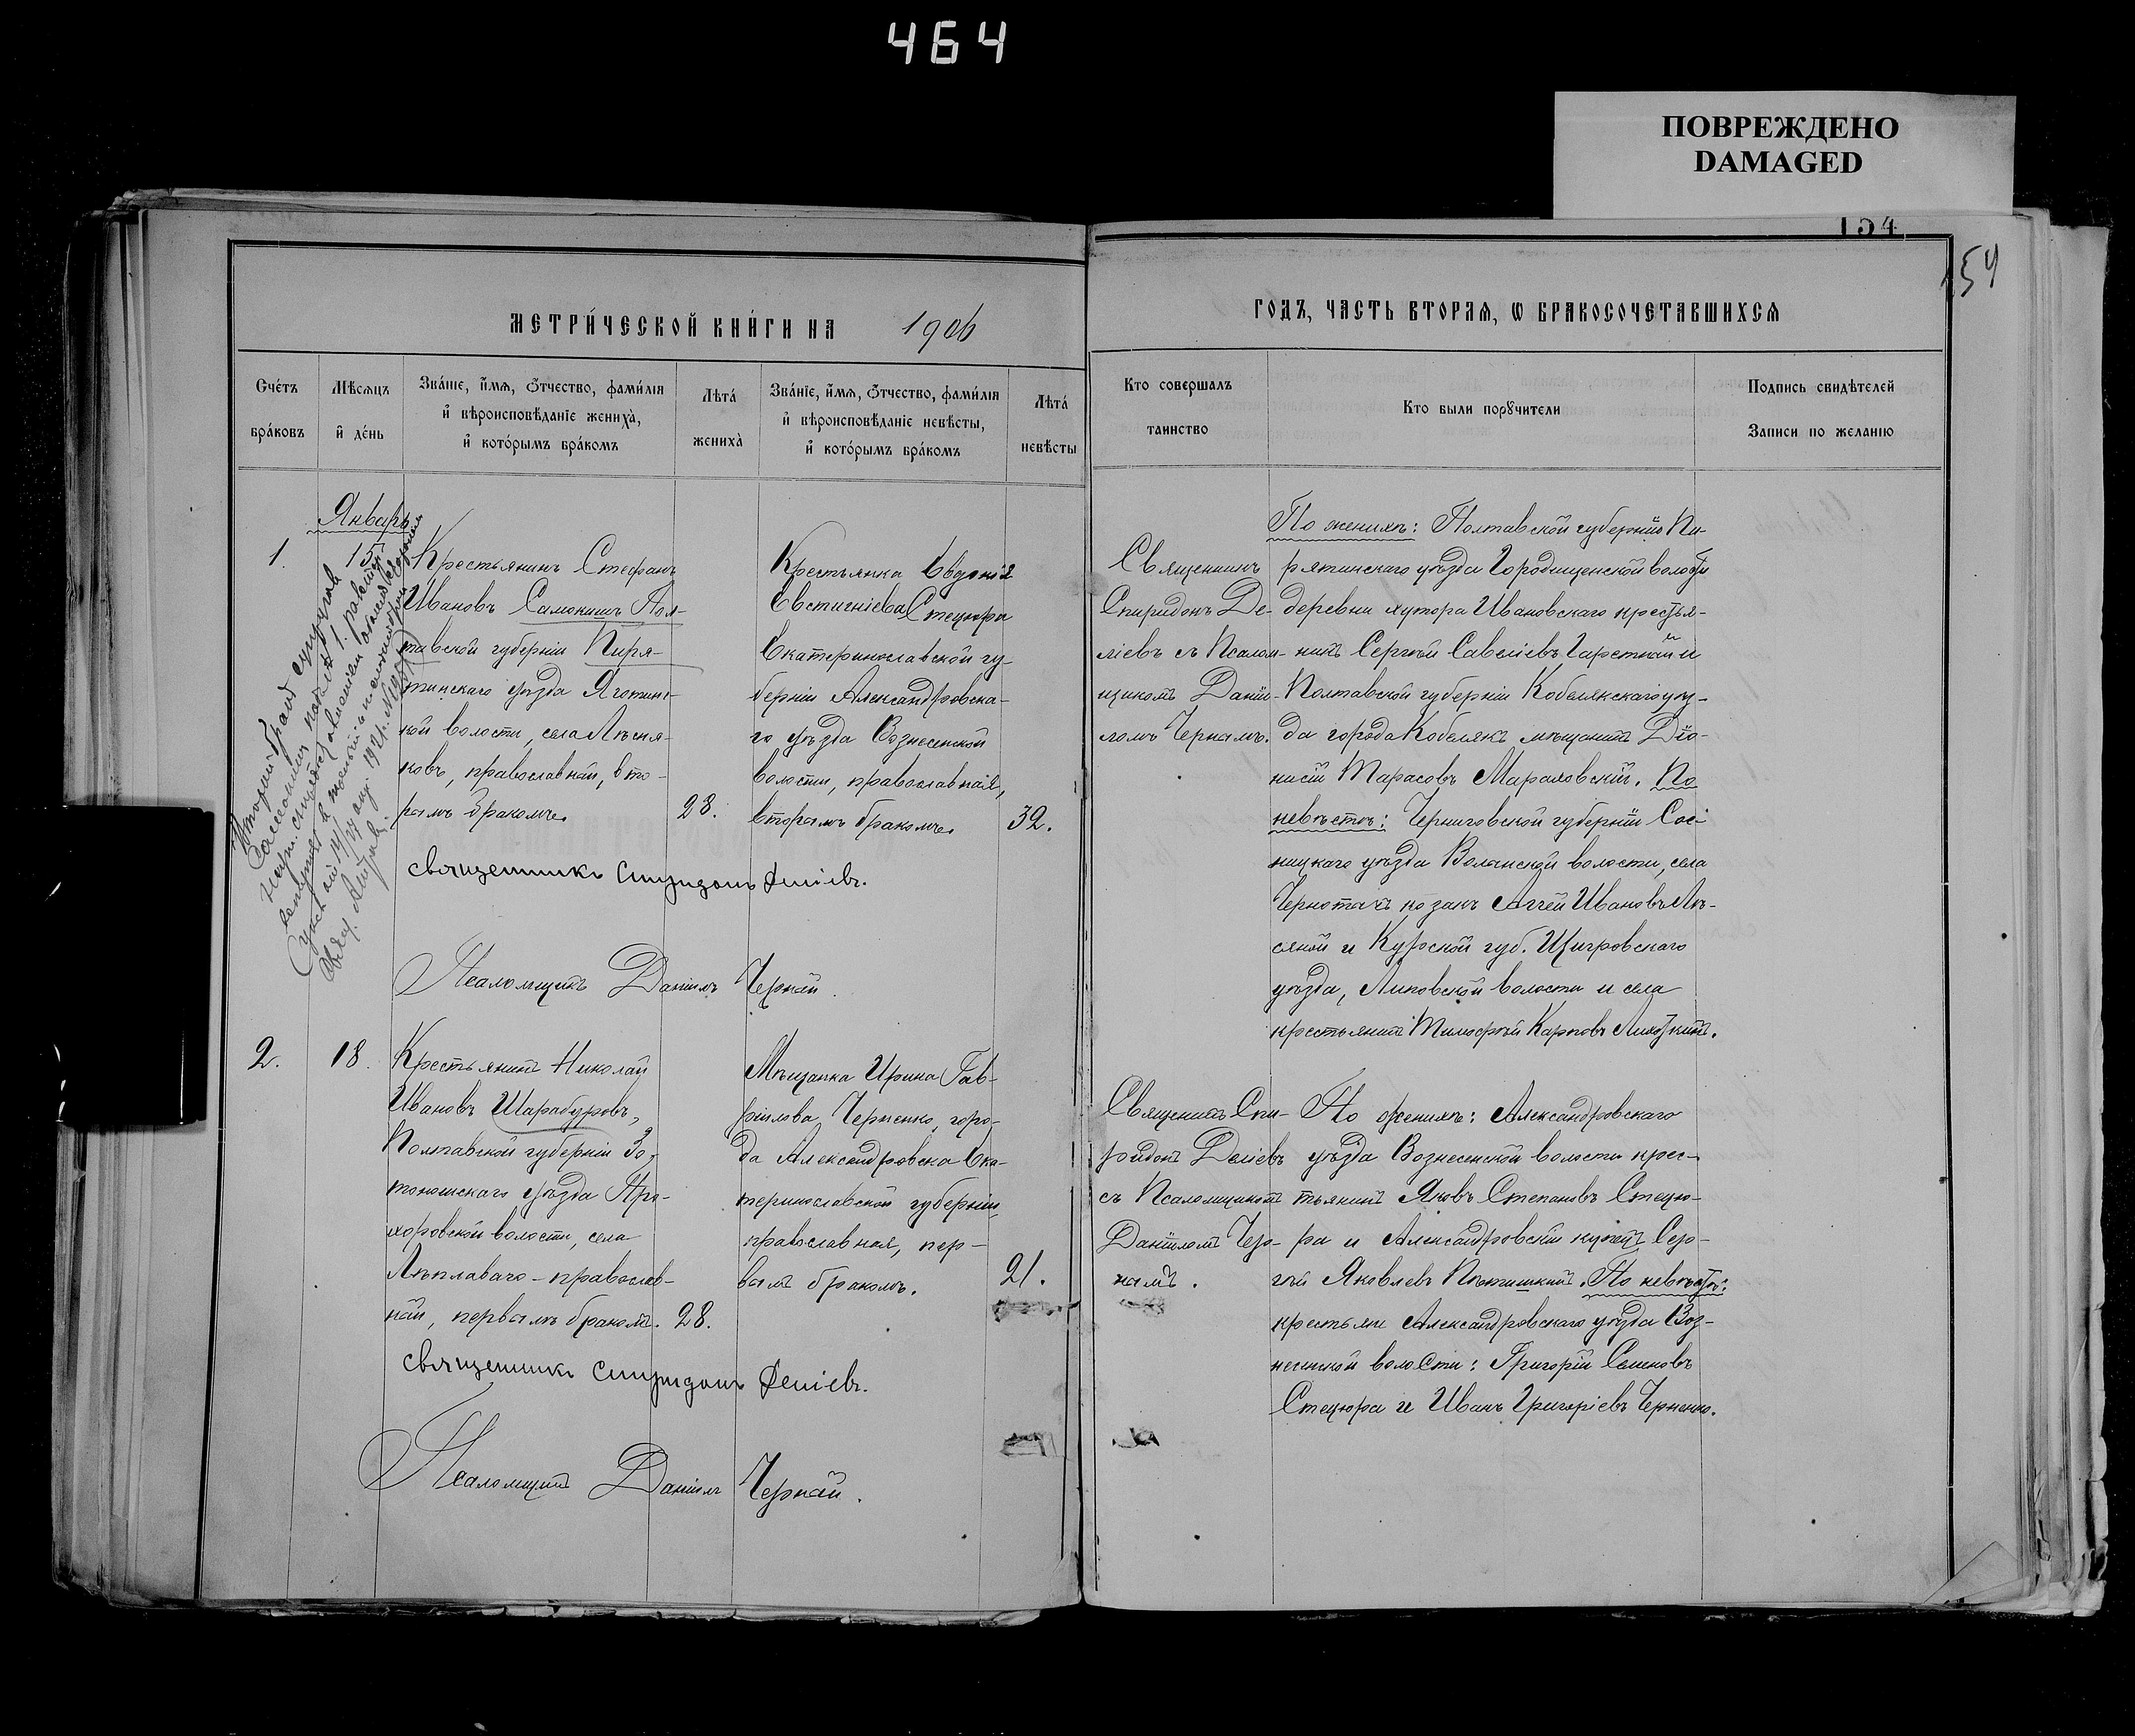 464
ПОВРЕЖДЕНО
DAMAGED
154
154
МЕТРИ́ЧЕСКОЙ КНИ́ГИ НА 1906
ГОДЪ, ЧАСТЬ ВТОРАѦ, Ѡ БРАКОСОЧЕТАВШИХСѦ
Сче́тъ
бра́ковъ
Мѣсѧцъ
и҆ де́нь
Зва́нїе, и҆́мѧ, ѻ҆́тчество, фами́лїѧ
и҆ вѣроисповѣданїе жениха̀,
и҆ кото́рымъ бра́комъ
Лѣта́
жениха̀
Зва́нїе, и҆́мѧ, ѻ҆́тчество, фами́лїѧ
и҆ вѣроисповѣданїе невѣсты,
и҆ кото́рымъ бра́комъ
Лѣта́
невѣсты
Кто совершалъ
таинство
Кто были порꙋчители
Подпись свидѣтелей
Записи по желанію
Январь
1.
15
Крестьянинъ Стефанъ
Ивановъ Самокишъ Пол-
тавской губерніи Пиря-
тинскаго уѣзда Яготинс-
кой волости, села Лѣсня-
ковъ, православный, вто-
рымъ бракомъ.
28.
Крестьянка Евдокія
Евстигніева Стецюра
Екатеринославской гу-
берніи Александровска-
го уѣзда Вознесенской
волости, православная,
вторымъ бракомъ.
32.
священникъ Спиридонъ Деліевъ.
Псаломщикъ Даніилъ Черный.
Священникъ
Спиридонъ Де-
ліевъ съ Псалом-
щикомъ Даніи-
ломъ Чернымъ.
По женихѣ: Полтавской губерніи Пи-
рятинскаго уѣзда Городищенской волости
деревни хутора Ивановскаго крестья-
нинъ Сергѣй Савеліевъ и
Полтавской губерніи Кобелякскаго уѣз-
да города Кобелякъ мѣщанинъ Діо-
нисій Тарасовъ. По
невѣстѣ: Черниговской губерніи Сос-
ницкаго уѣзда Волынской волости, села
козакъ Аггей Ивановъ Лѣ-
сяной и Курской губ. Щигровскаго
уѣзда, Липовской волости и села
крестьянинъ Тимофей Карповъ.
2.
18.
Крестьянинъ Николай
Ивановъ Шарабуровъ,
Полтавской губерніи Зо-
тоношскаго уѣзда Про-
хоровской волости, села
Лѣплаваго - православ-
ный, первымъ бракомъ.
28.
Мѣщанка Ирина Гав-
ріилова Черненко, горо-
да Александровска Ека-
теринославской губерніи,
православная, пер-
вымъ бракомъ.
21.
священникъ Спиридонъ Деліевъ.
Псаломщикъ Даніилъ Черный.
Священникъ Спи-
ридонъ Деліевъ
съ Псаломщикомъ
Даніиломъ Чер-
нымъ.
По женихѣ: Александровскаго
уѣзда Вознесенской волости крес-
тьянинъ Яковъ Степановъ Стецю-
ра и Александровскій купецъ Сер-
гѣй Яковлевъ. По невѣстѣ:
крестьяне Александровскаго уѣзда Воз-
несенской волости: Григорій Семеновъ
Стецюра и Иванъ Григоріевъ Черненко.